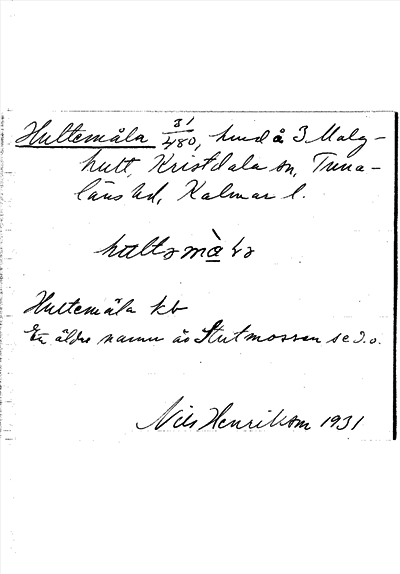 Hultemåla 31/480, hmd å 3 Malg-
hult, Kristdala sn, Tuna-
läns hd, Kalmar l.
Hultemåla kb
Ett äldre namn är Stutmossen se d.o.
Nils Henrikson 1931